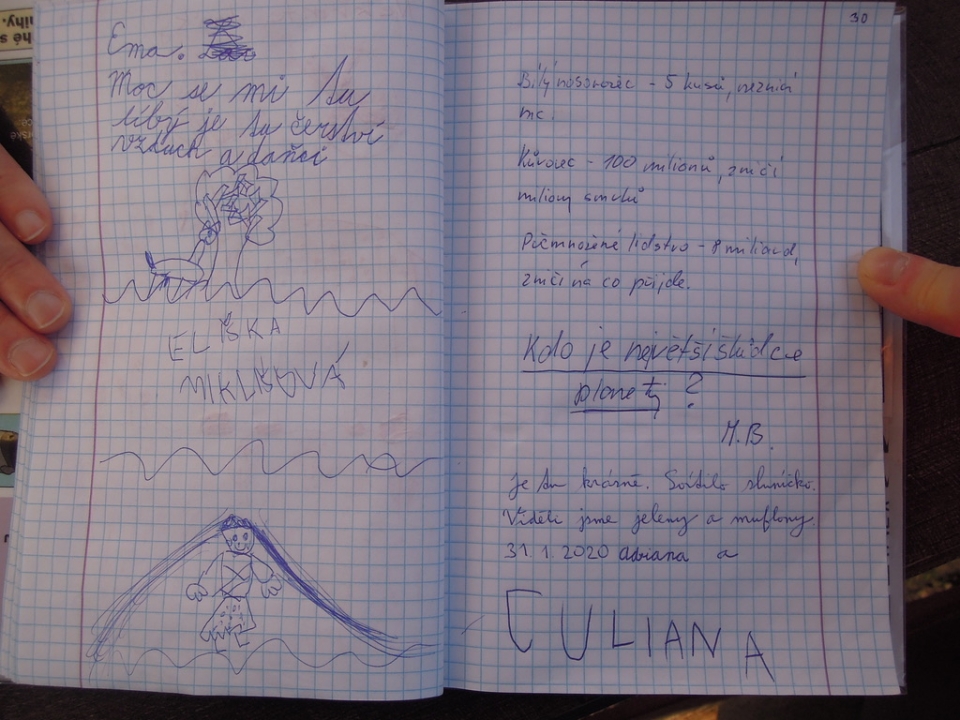 Ema.
Moc se mi tu
libý je tu čerství
vzduch a daňci
ELIŠKA
MIKLISOVÁ
30
Bílý nosorožec - 5 kusů, nezničí
nic.
Kůrovec - 100 milionů, zničí
miliony smrků
Přemnožené lidstvo - 8 miliard,
zničí na co přijde.
Kdo je největší škůdce
planety?
M.B.
Je tu krásně. Svítilo sluníčko.
Viděli jsme jeleny a muflony.
31.1.2020 adriana a
JULIANA